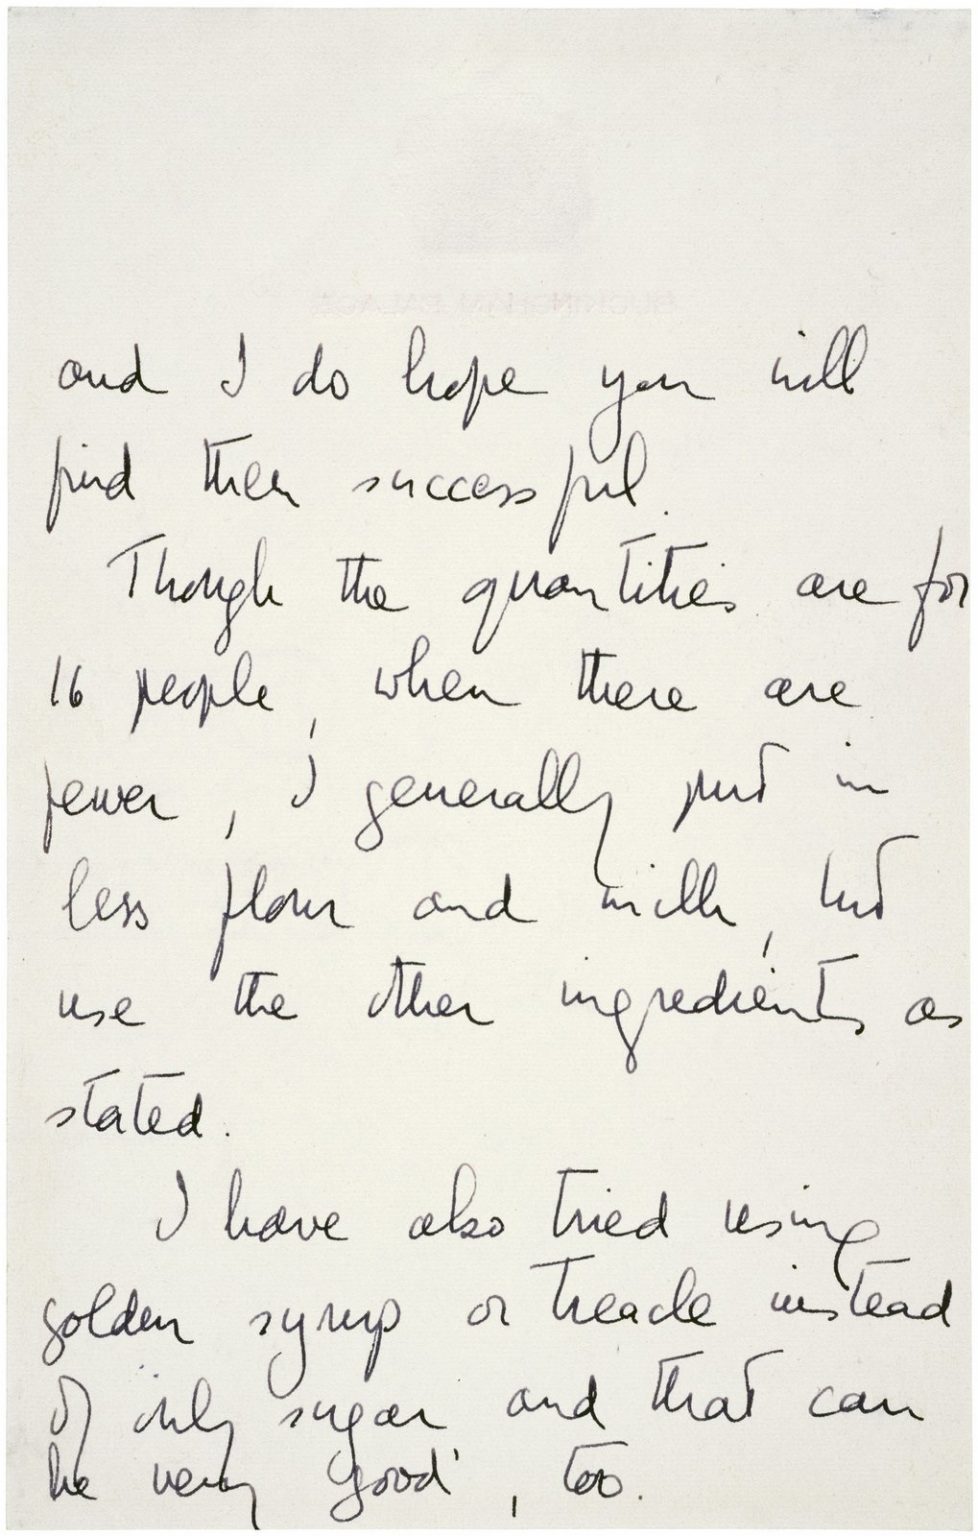 and I do hope you will
find them successful.
Though the quantities are for
16 people, when there are
fewer, I generally put in
less flour and milk, but
use the other ingredients as
stated.
I have also tried using
golden syrup or treacle instead
of only sugar and that can
be very good, too.